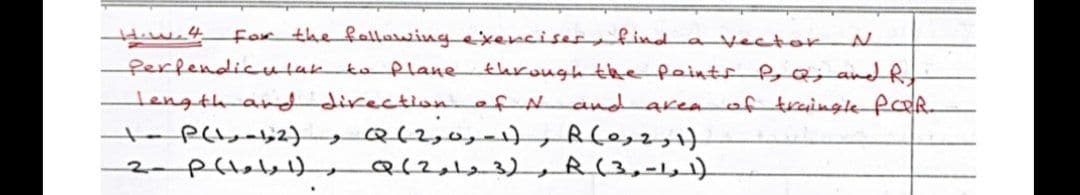 H.w.4 For the following exercises, find a vector N
Perpendicular to Plane through the Points P, Q, and R,
length and direction of N and area of traingle PQR.
1- P(1,-1,2) , Q(2,0,-1) , R(0,2,1)
2- P(1,1,1) , Q(2,1,3) , R(3,-1,1)